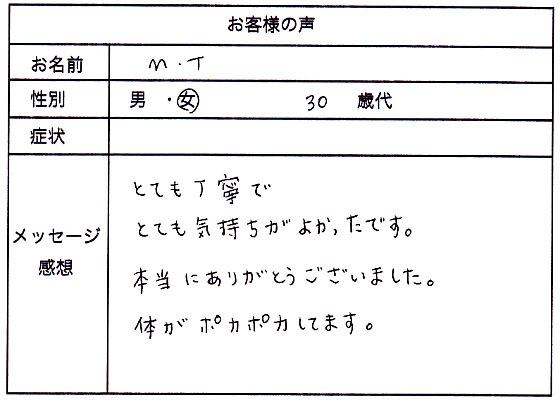 お客様の声
お名前 M・T
性別 男 ・ 女 30 歳代
症状
メッセージ
感想
とても丁寧で
とても気持ちがよかったです。
本当にありがとうございました。
体がポカポカしてます。